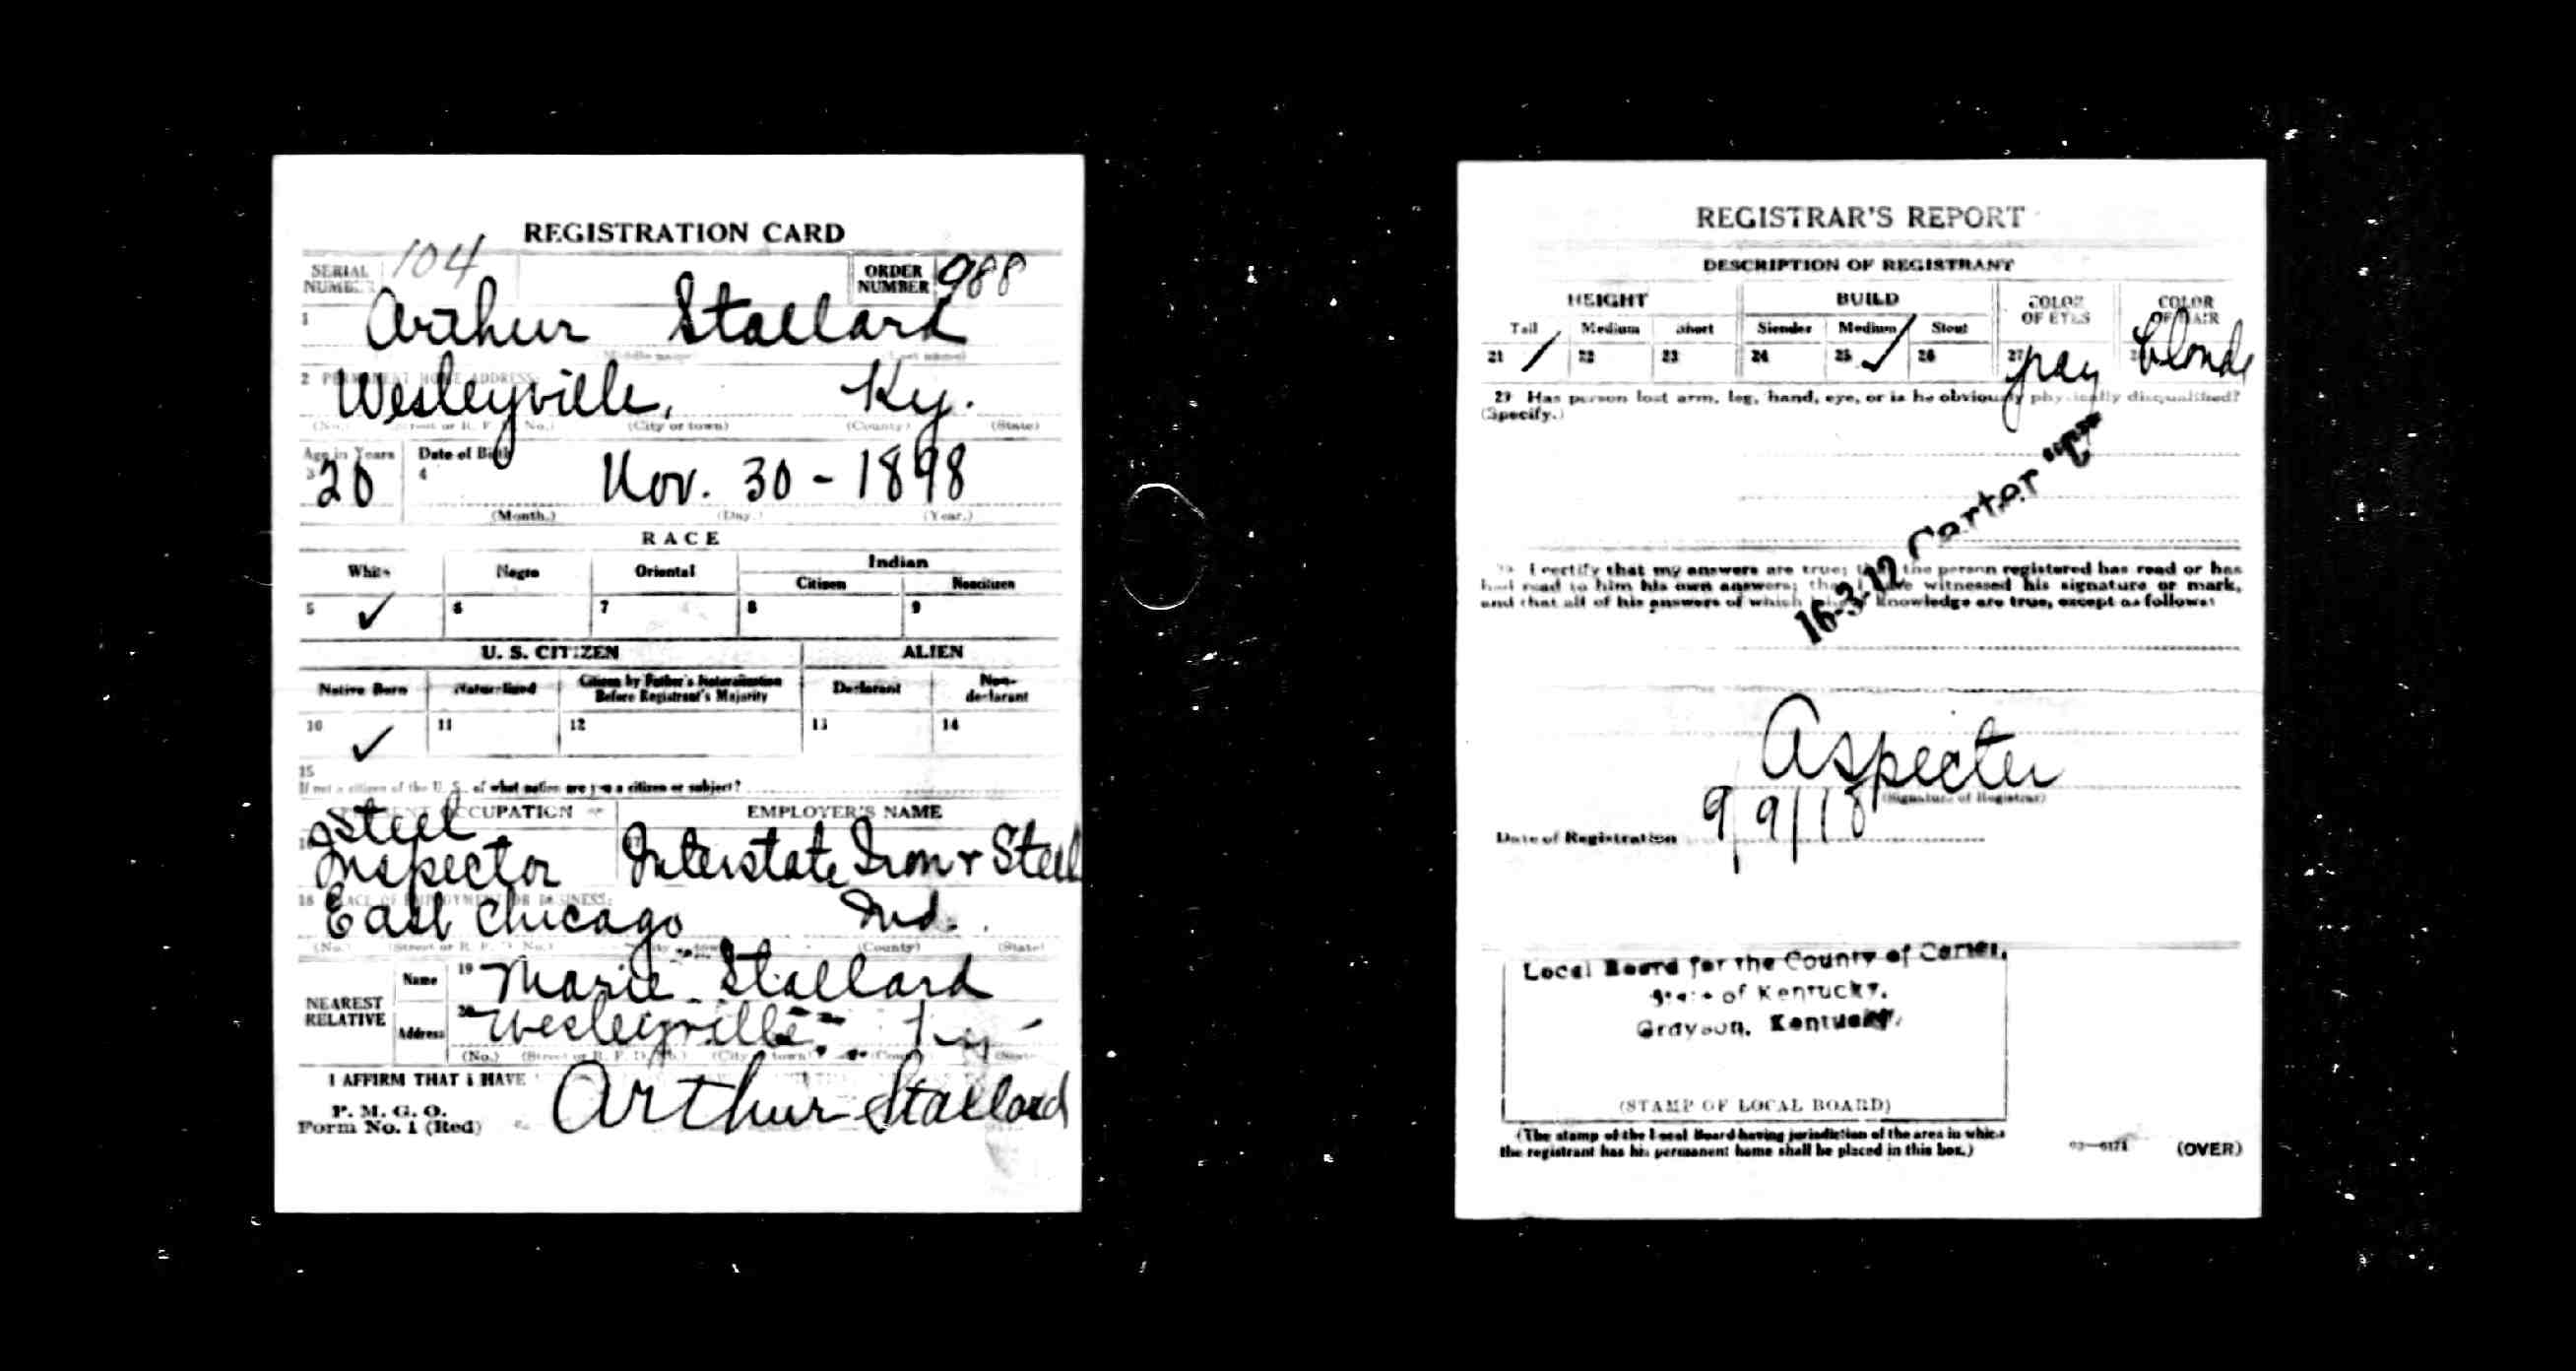 REGISTRATION CARD
SERIAL NUMBER 104 ORDER NUMBER 988
1 Arthur Stallard
(Middle name) (Last name)
2 PERMANENT HOME ADDRESS:
Wesleyville, Ky.
(No.) (Street or R. F. D. No.) (City or town) (County) (State)
Age in Years Date of Birth
3 20 4 Nov. 30 - 1898
(Month.) (Day.) (Year.)
RACE
White Negro Oriental Indian
Citizen Noncitizen
5 ✓ 6 7 8 9
U. S. CITIZEN ALIEN
Native Born Naturalized Citizen by Father's Naturalization Before Registrant's Majority Declarant Non-declarant
10 ✓ 11 12 13 14
15
If not a citizen of the U. S., of what nation are you a citizen or subject?
PRESENT OCCUPATION EMPLOYER'S NAME
Steel
16 Inspector 17 Interstate Iron + Steel
18 PLACE OF EMPLOYMENT OR BUSINESS:
East Chicago Ind.
(No.) (Street or R. F. D. No.) (City or town) (County) (State)
NEAREST RELATIVE
Name 19 Marie Stallard
Address 20 Wesleyville, Ky
(No.) (Street or R. F. D. No.) (City or town) (County) (State)
I AFFIRM THAT I HAVE
P. M. G. O.
Form No. 1 (Red) Arthur Stallard
REGISTRAR'S REPORT
DESCRIPTION OF REGISTRANT
HEIGHT BUILD COLOR OF EYES COLOR OF HAIR
Tall Medium Short Slender Medium Stout
21 ✓ 22 23 24 25 ✓ 26 27 gray blonde
29 Has person lost arm, leg, hand, eye, or is he obviously physically disqualified?
(Specify.)
16-3-12 Carter "C"
I certify that my answers are true; that the person registered has read or has
had read to him his own answers; that I have witnessed his signature or mark,
and that all of his answers of which I have knowledge are true, except as follows:
A Specter
(Signature of Registrar)
Date of Registration 9/9/18
Local Board for the County of Carter,
State of Kentucky,
Grayson, Kentucky.
(STAMP OF LOCAL BOARD)
(The stamp of the Local Board having jurisdiction of the area in which
the registrant has his permanent home shall be placed in this box.)
03—6171 (OVER)